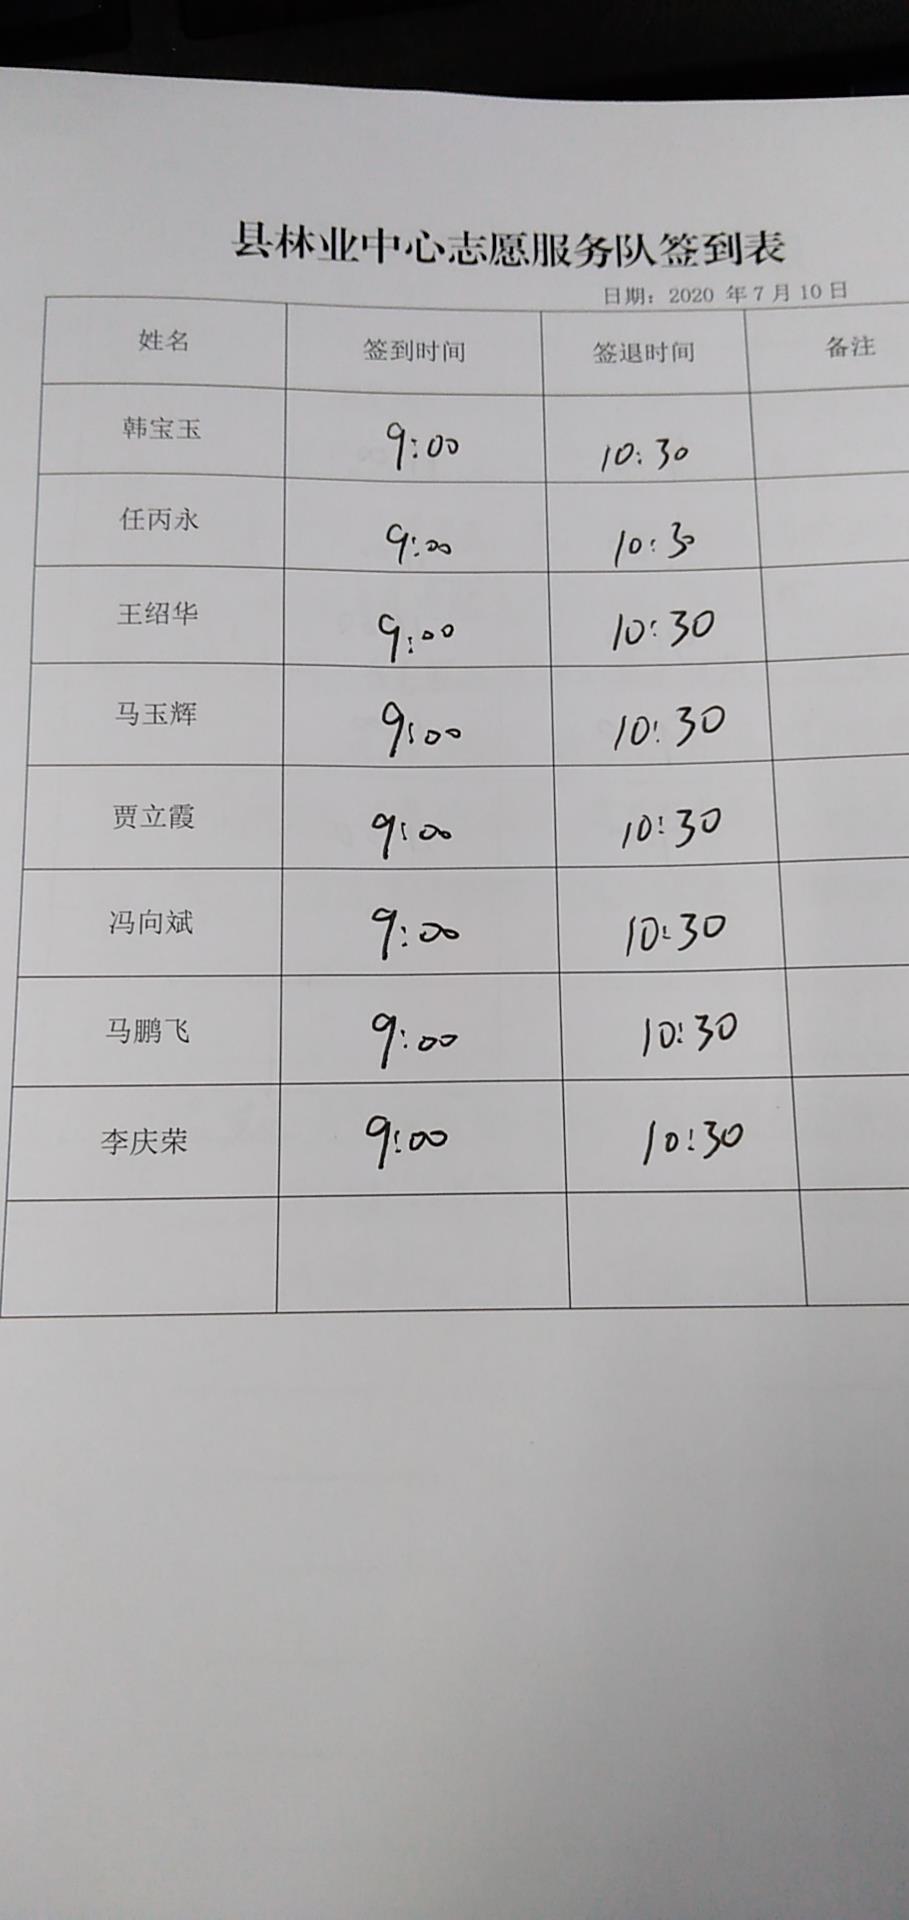 县林业中心志愿服务队签到表
日期：2020 年7月10日
姓名 签到时间 签退时间 备注
韩宝玉 9:00 10:30
任丙永 9:00 10:30
王绍华 9:00 10:30
马玉辉 9:00 10:30
贾立霞 9:00 10:30
冯向斌 9:00 10:30
马鹏飞 9:00 10:30
李庆荣 9:00 10:30